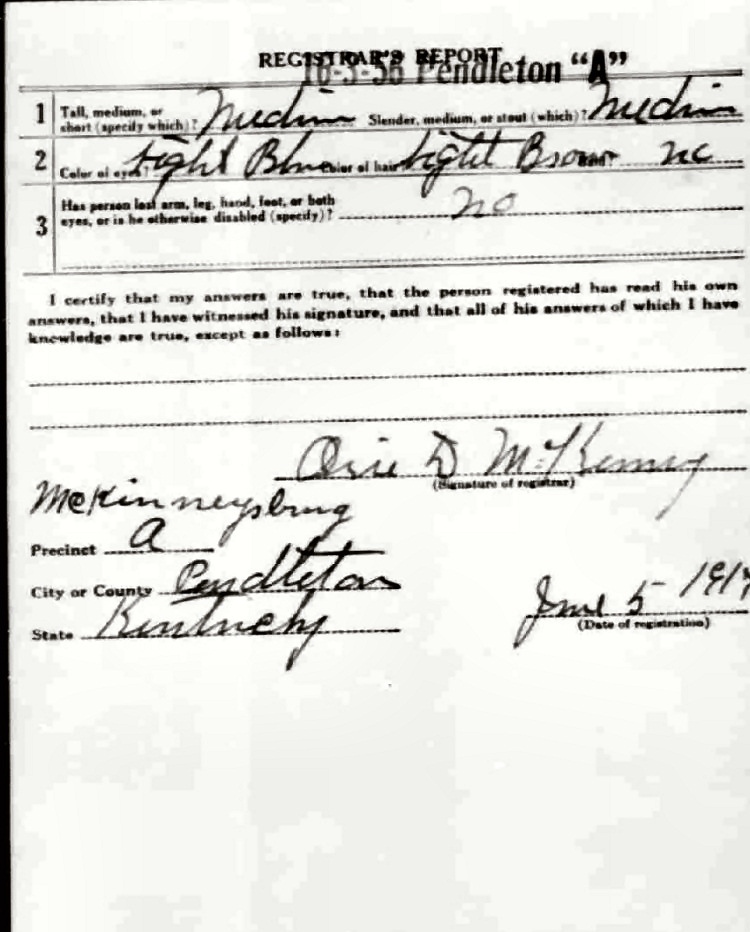 REGISTRAR'S REPORT
16-3-56 Pendleton "A"
1 Tall, medium, or short (specify which)? Medium Slender, medium, or stout (which)? Medium
2 Color of eyes? Light Blue Color of hair Light Brown no
3 Has person lost arm, leg, hand, foot, or both
eyes, or is he otherwise disabled (specify)? no
I certify that my answers are true, that the person registered has read his own
answers, that I have witnessed his signature, and that all of his answers of which I have
knowledge are true, except as follows:
D McKenney
(Signature of registrar)
McKinneysburg
Precinct A
City or County Pendleton
State Kentucky
June 5 1917
(Date of registration)